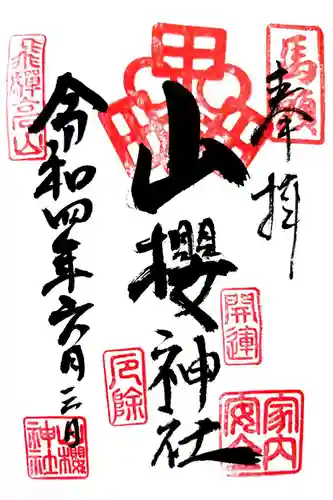 奉拝
馬頭
山櫻神社
開運
家内安全
厄除
令和四年六月三日
飛騨高山
山櫻神社